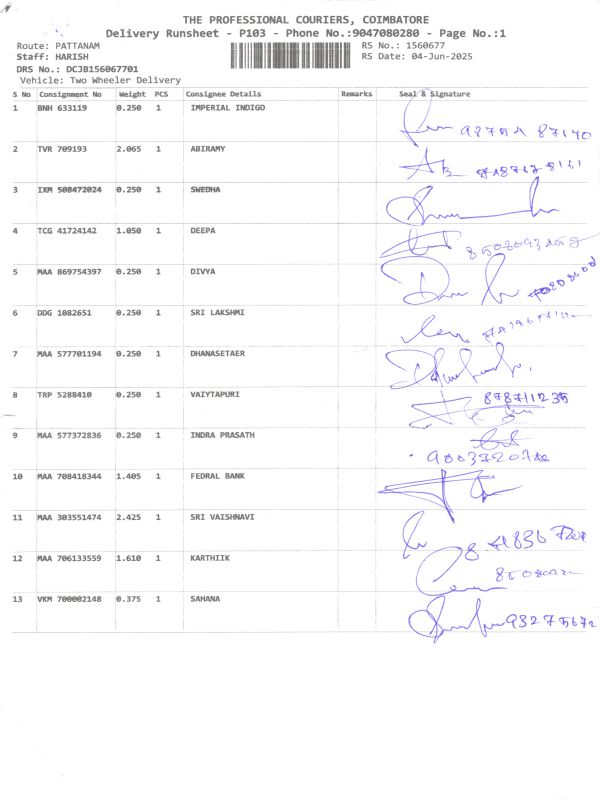 THE PROFESSIONAL COURIERS, COIMBATORE
Delivery Runsheet - P103 - Phone No.:9047080280 - Page No.:1
Route: PATTANAM RS No.: 1560677
Staff: HARISH RS Date: 04-Jun-2025
DRS No.: DCJB156067701
Vehicle: Two Wheeler Delivery
S No Consignment No Weight PCS Consignee Details Remarks Seal & Signature
1 BNH 633119 0.250 1 IMPERIAL INDIGO
2 TVR 709193 2.065 1 ABIRAMY
3 IXM 508472024 0.250 1 SWEDHA
4 TCG 41724142 1.050 1 DEEPA
5 MAA 869754397 0.250 1 DIVYA
6 DDG 1082651 0.250 1 SRI LAKSHMI
7 MAA 577701194 0.250 1 DHANASETAER
8 TRP 5288410 0.250 1 VAIYTAPURI 878711235
9 MAA 577372836 0.250 1 INDRA PRASATH
10 MAA 708418344 1.405 1 FEDRAL BANK
11 MAA 303551474 2.425 1 SRI VAISHNAVI
12 MAA 706133559 1.610 1 KARTHIIK
13 VKM 700002148 0.375 1 SAHANA